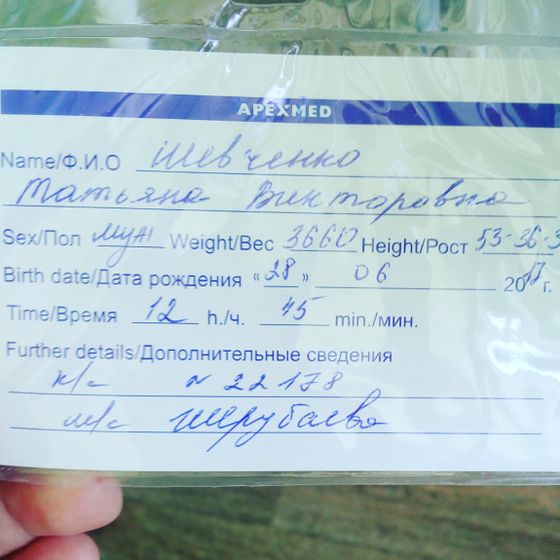 APEXMED
Name/Ф.И.О Шевченко
Татьяна Викторовна
Sex/Пол муж Weight/Вес 3660 Height/Рост 53-36-3
Birth date/Дата рождения «28» 06 2017 г.
Time/Время 12 h./ч. 45 min./мин.
Further details/Дополнительные сведения
к/с N 22178
м/с Шрубаева